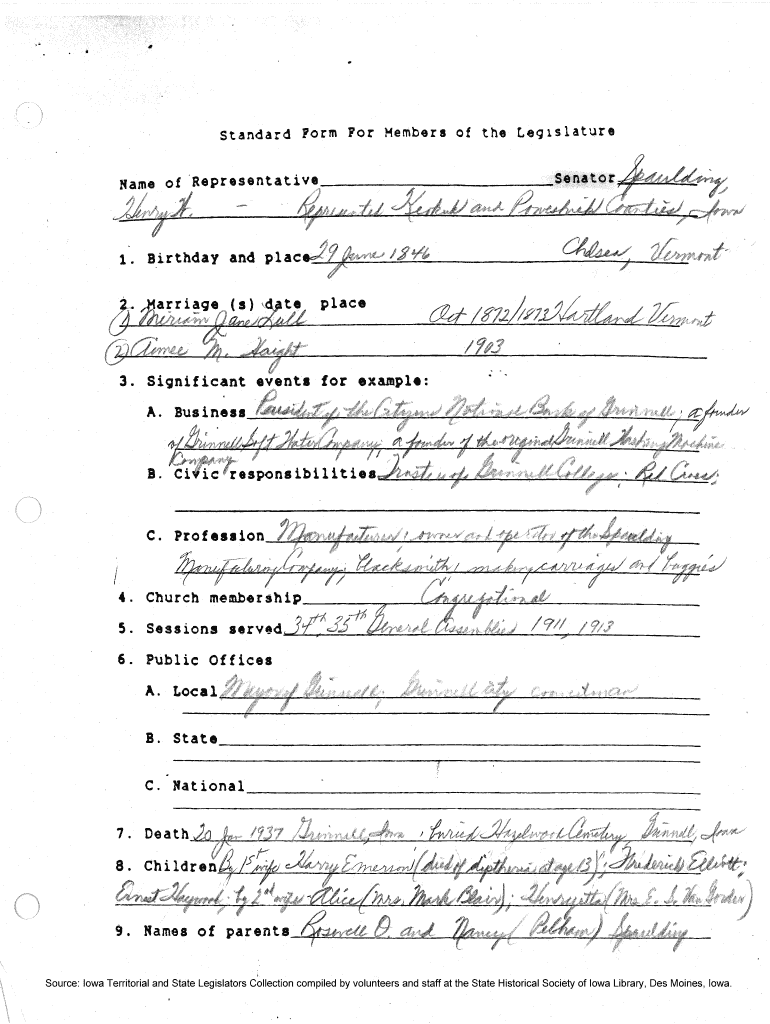 Standard Form For Members of the Legislature
Name of Representative Senator Spaulding,
Henry W. - Represented Keokuk and Poweshiek Counties, Iowa
1. Birthday and place 29 June 1846 Chelsea, Vermont
2. Marriage (s) date place
(1) Miriam Jane Lull Oct 1872/1873 Hartland Vermont
(2) Aimee M. Haight 1903
3. Significant events for example:
A. Business President of the Citizens National Bank of Grinnell; a founder
of Grinnell Soft Water Company; a founder of the original Grinnell Washing Machine
Company
B. Civic responsibilities Trustee of Grinnell College; Red Cross;
C. Profession Manufacturer; owner and operator of the Spaulding
Manufacturing Company; blacksmith; making carriages and buggies
4. Church membership Congregational
5. Sessions served 34th, 35th General Assemblies 1911, 1913
6. Public Offices
A. Local Mayor of Grinnell; Grinnell city councilman
B. State
C. National
7. Death 20 Jan 1937 Grinnell, Iowa; buried Hazelwood Cemetery, Grinnell, Iowa
8. Children By 1st wife Harry Emerson (died of diptheria at age 13); Frederick Elliott;
Ernest Haywood; by 2nd wife - Alice (Mrs. Mark Blair); Henryetta (Mrs. E. S. Van Gorder)
9. Names of parents Roswell O. and Nancy (Pelham) Spaulding
Source: Iowa Territorial and State Legislators Collection compiled by volunteers and staff at the State Historical Society of Iowa Library, Des Moines, Iowa.